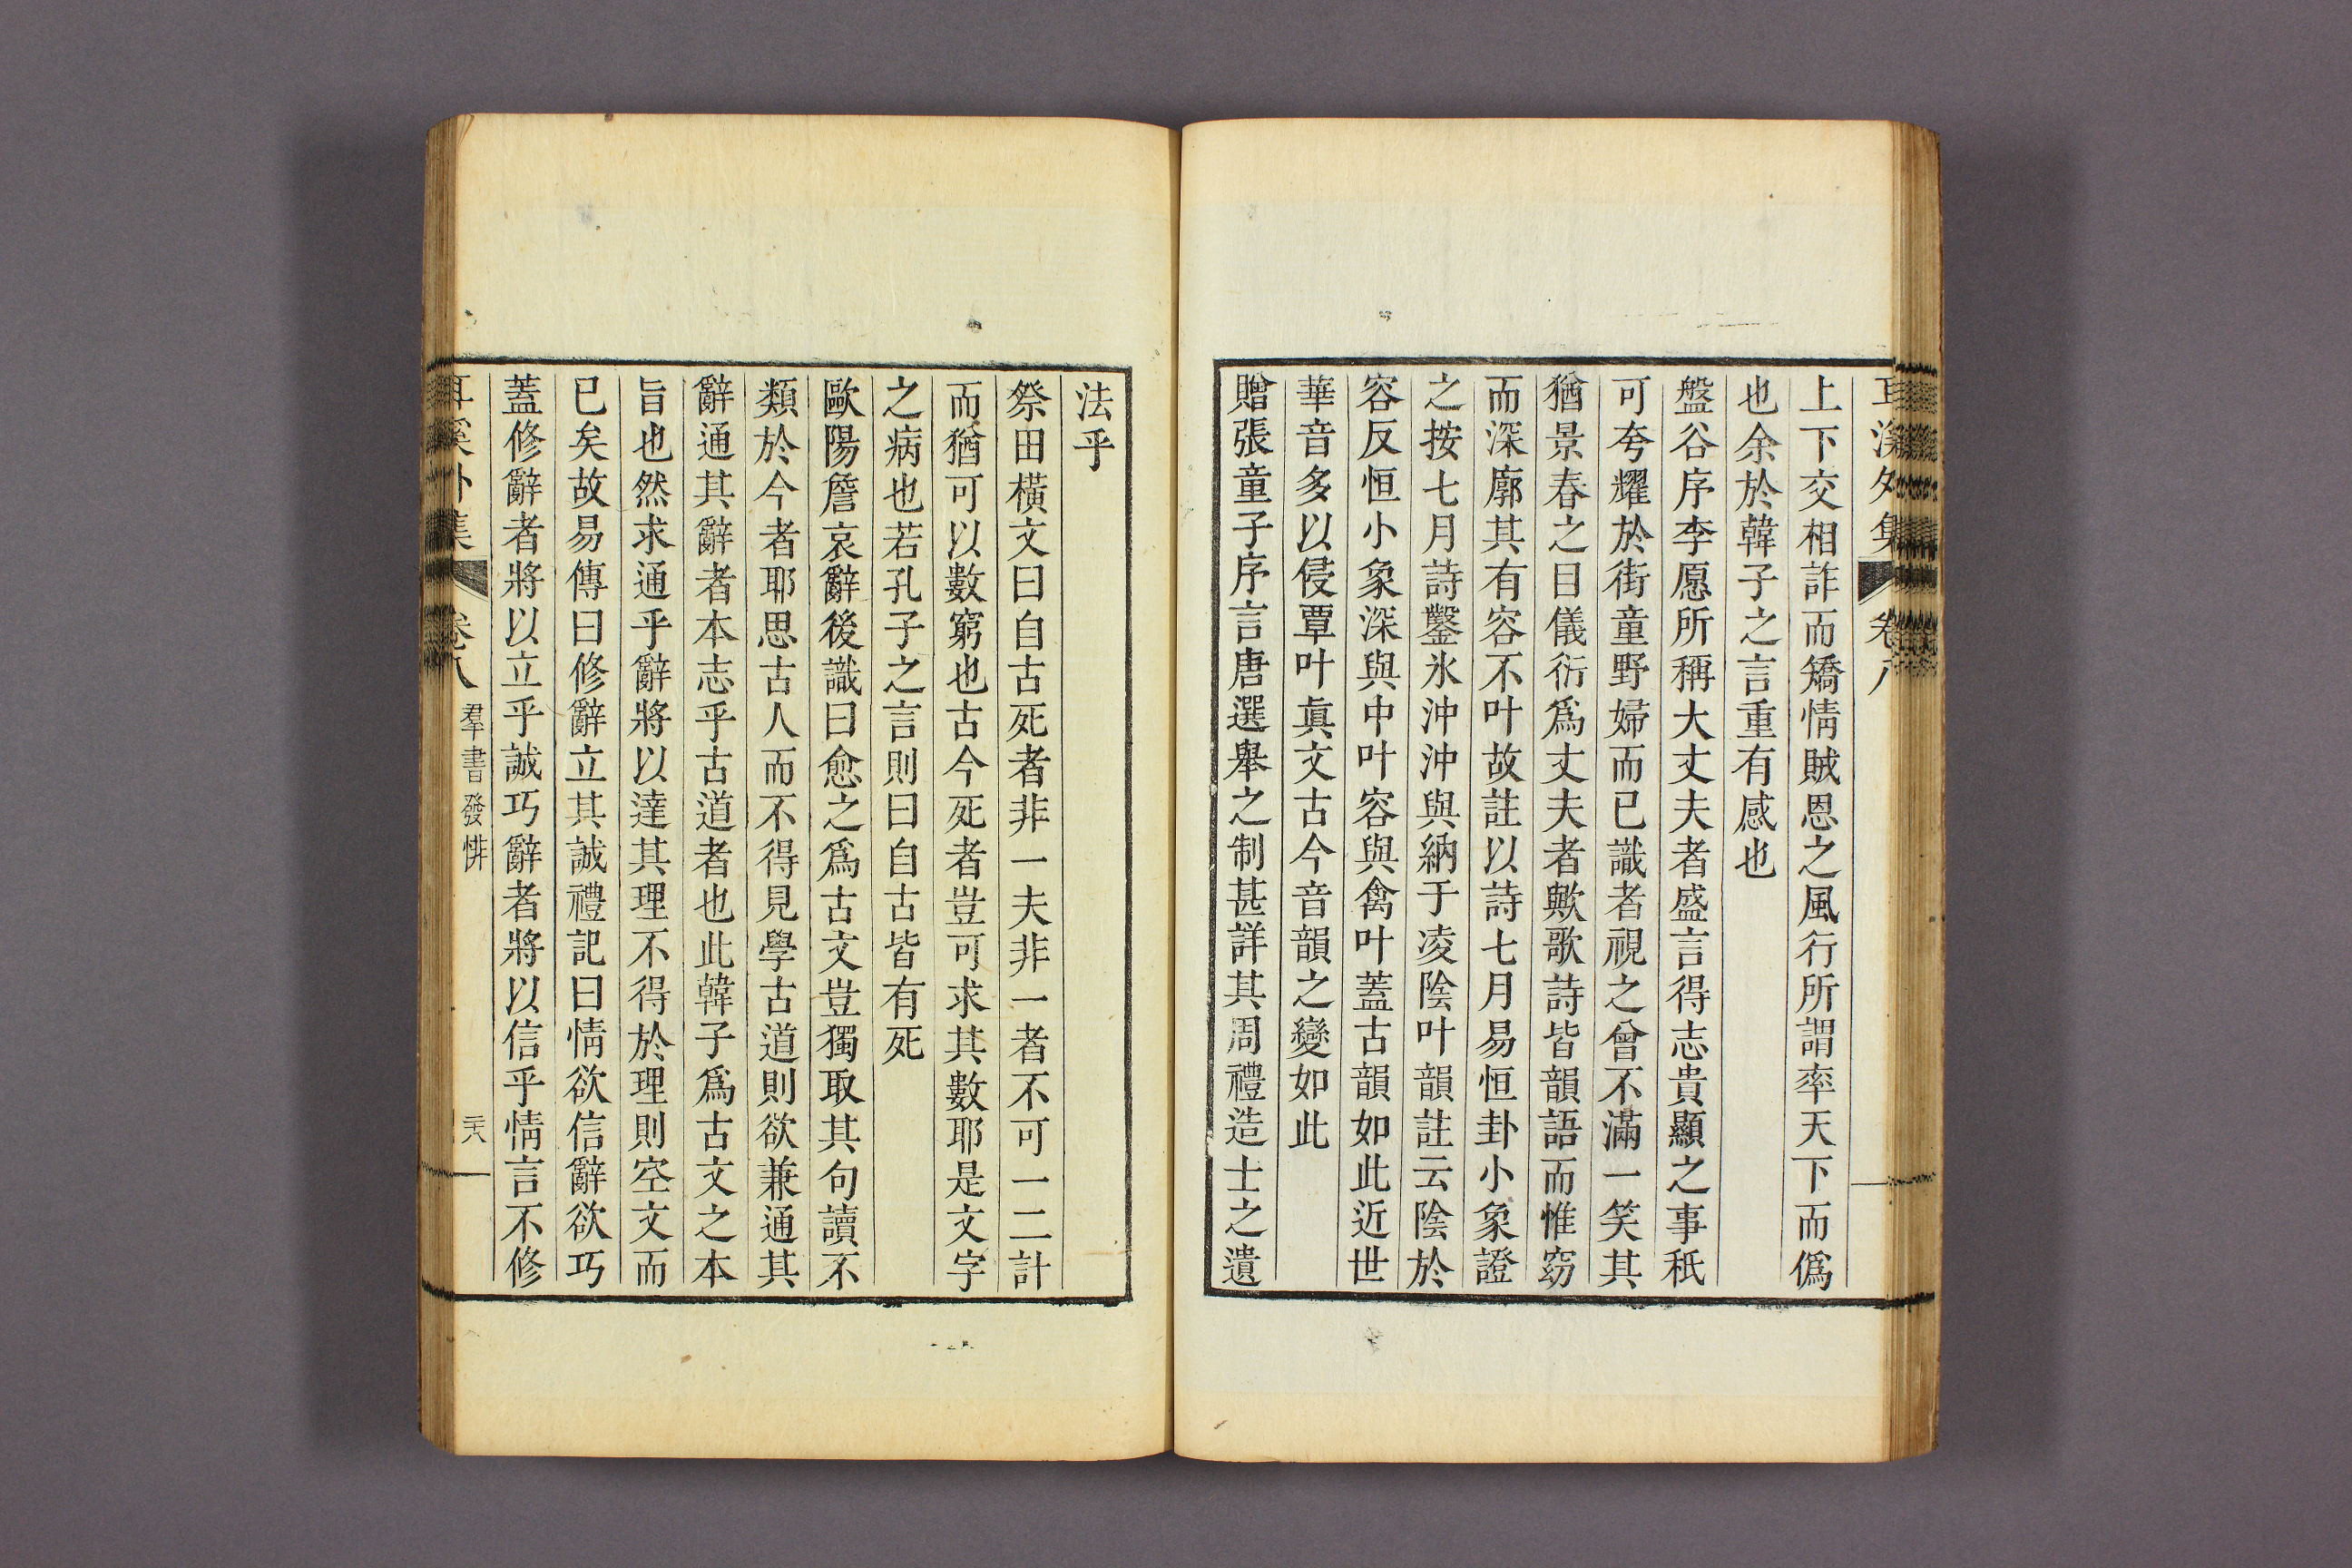 耳溪外集 卷八
上下交相詐而矯情賊恩之風行所謂率天下而僞
也余於韓子之言重有感也
盤谷序李愿所稱大丈夫者盛言得志貴顯之事秖
可夸耀於街童野婦而已識者視之曾不滿一笑其
猶景春之目儀衍爲丈夫者歟歌詩皆韻語而惟窈
而深廓其有容不叶故註以詩七月易恒卦小象證
之按七月詩鑿氷沖沖與納于凌陰叶韻註云陰於
容反恒小象深與中叶容與禽叶蓋古韻如此近世
華音多以侵覃叶眞文古今音韻之變如此
贈張童子序言唐選舉之制甚詳其周禮造士之遺
法乎
祭田橫文曰自古死者非一夫非一者不可一二計
而猶可以數窮也古今死者豈可求其數耶是文字
之病也若孔子之言則曰自古皆有死
歐陽詹哀辭後識曰愈之爲古文豈獨取其句讀不
類於今者耶思古人而不得見學古道則欲兼通其
辭通其辭者本志乎古道者也此韓子爲古文之本
旨也然求通乎辭將以達其理不得於理則空文而
已矣故易傳曰修辭立其誠禮記曰情欲信辭欲巧
蓋修辭者將以立乎誠巧辭者將以信乎情言不修
耳溪外集 卷八 羣書發悱 二十八